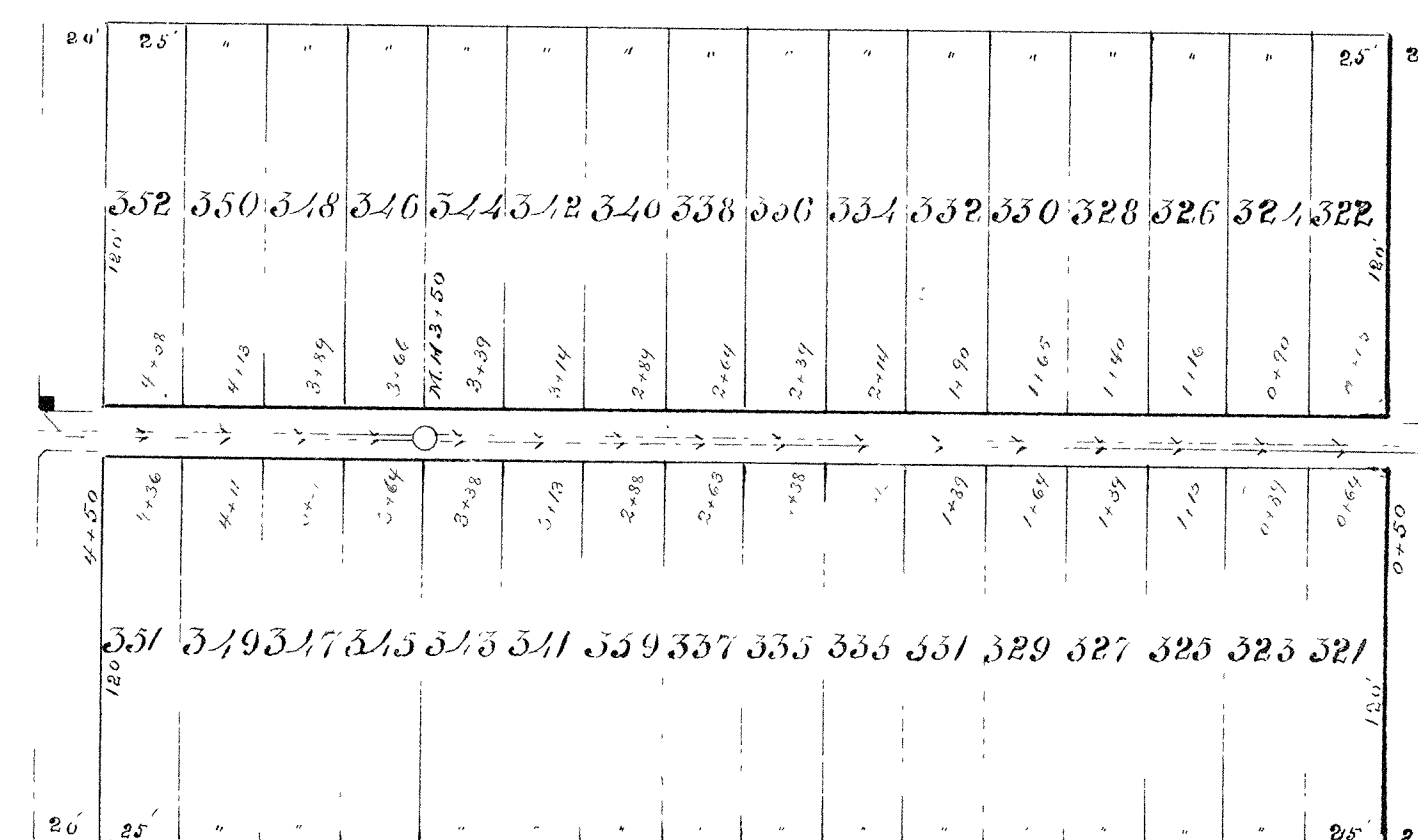 20' 25' " " " " " " " " " " " " " " 25'
352 350 348 346 344 342 340 338 336 334 332 330 328 326 324 322
120' 120'
M.H 3+50
4+38 4+13 3+89 3+66 3+39 3+14 2+89 2+64 2+39 2+14 1+90 1+65 1+40 1+16 0+90
4+36 4+11 3+64 3+38 3+13 2+88 2+63 +38 1+89 1+64 1+39 1+15 0+89 0+64
4+50 0+50
351 349 347 345 343 341 339 337 335 333 331 329 327 325 323 321
120 120'
20' 25' " " " " " " " " " " " " " 25'